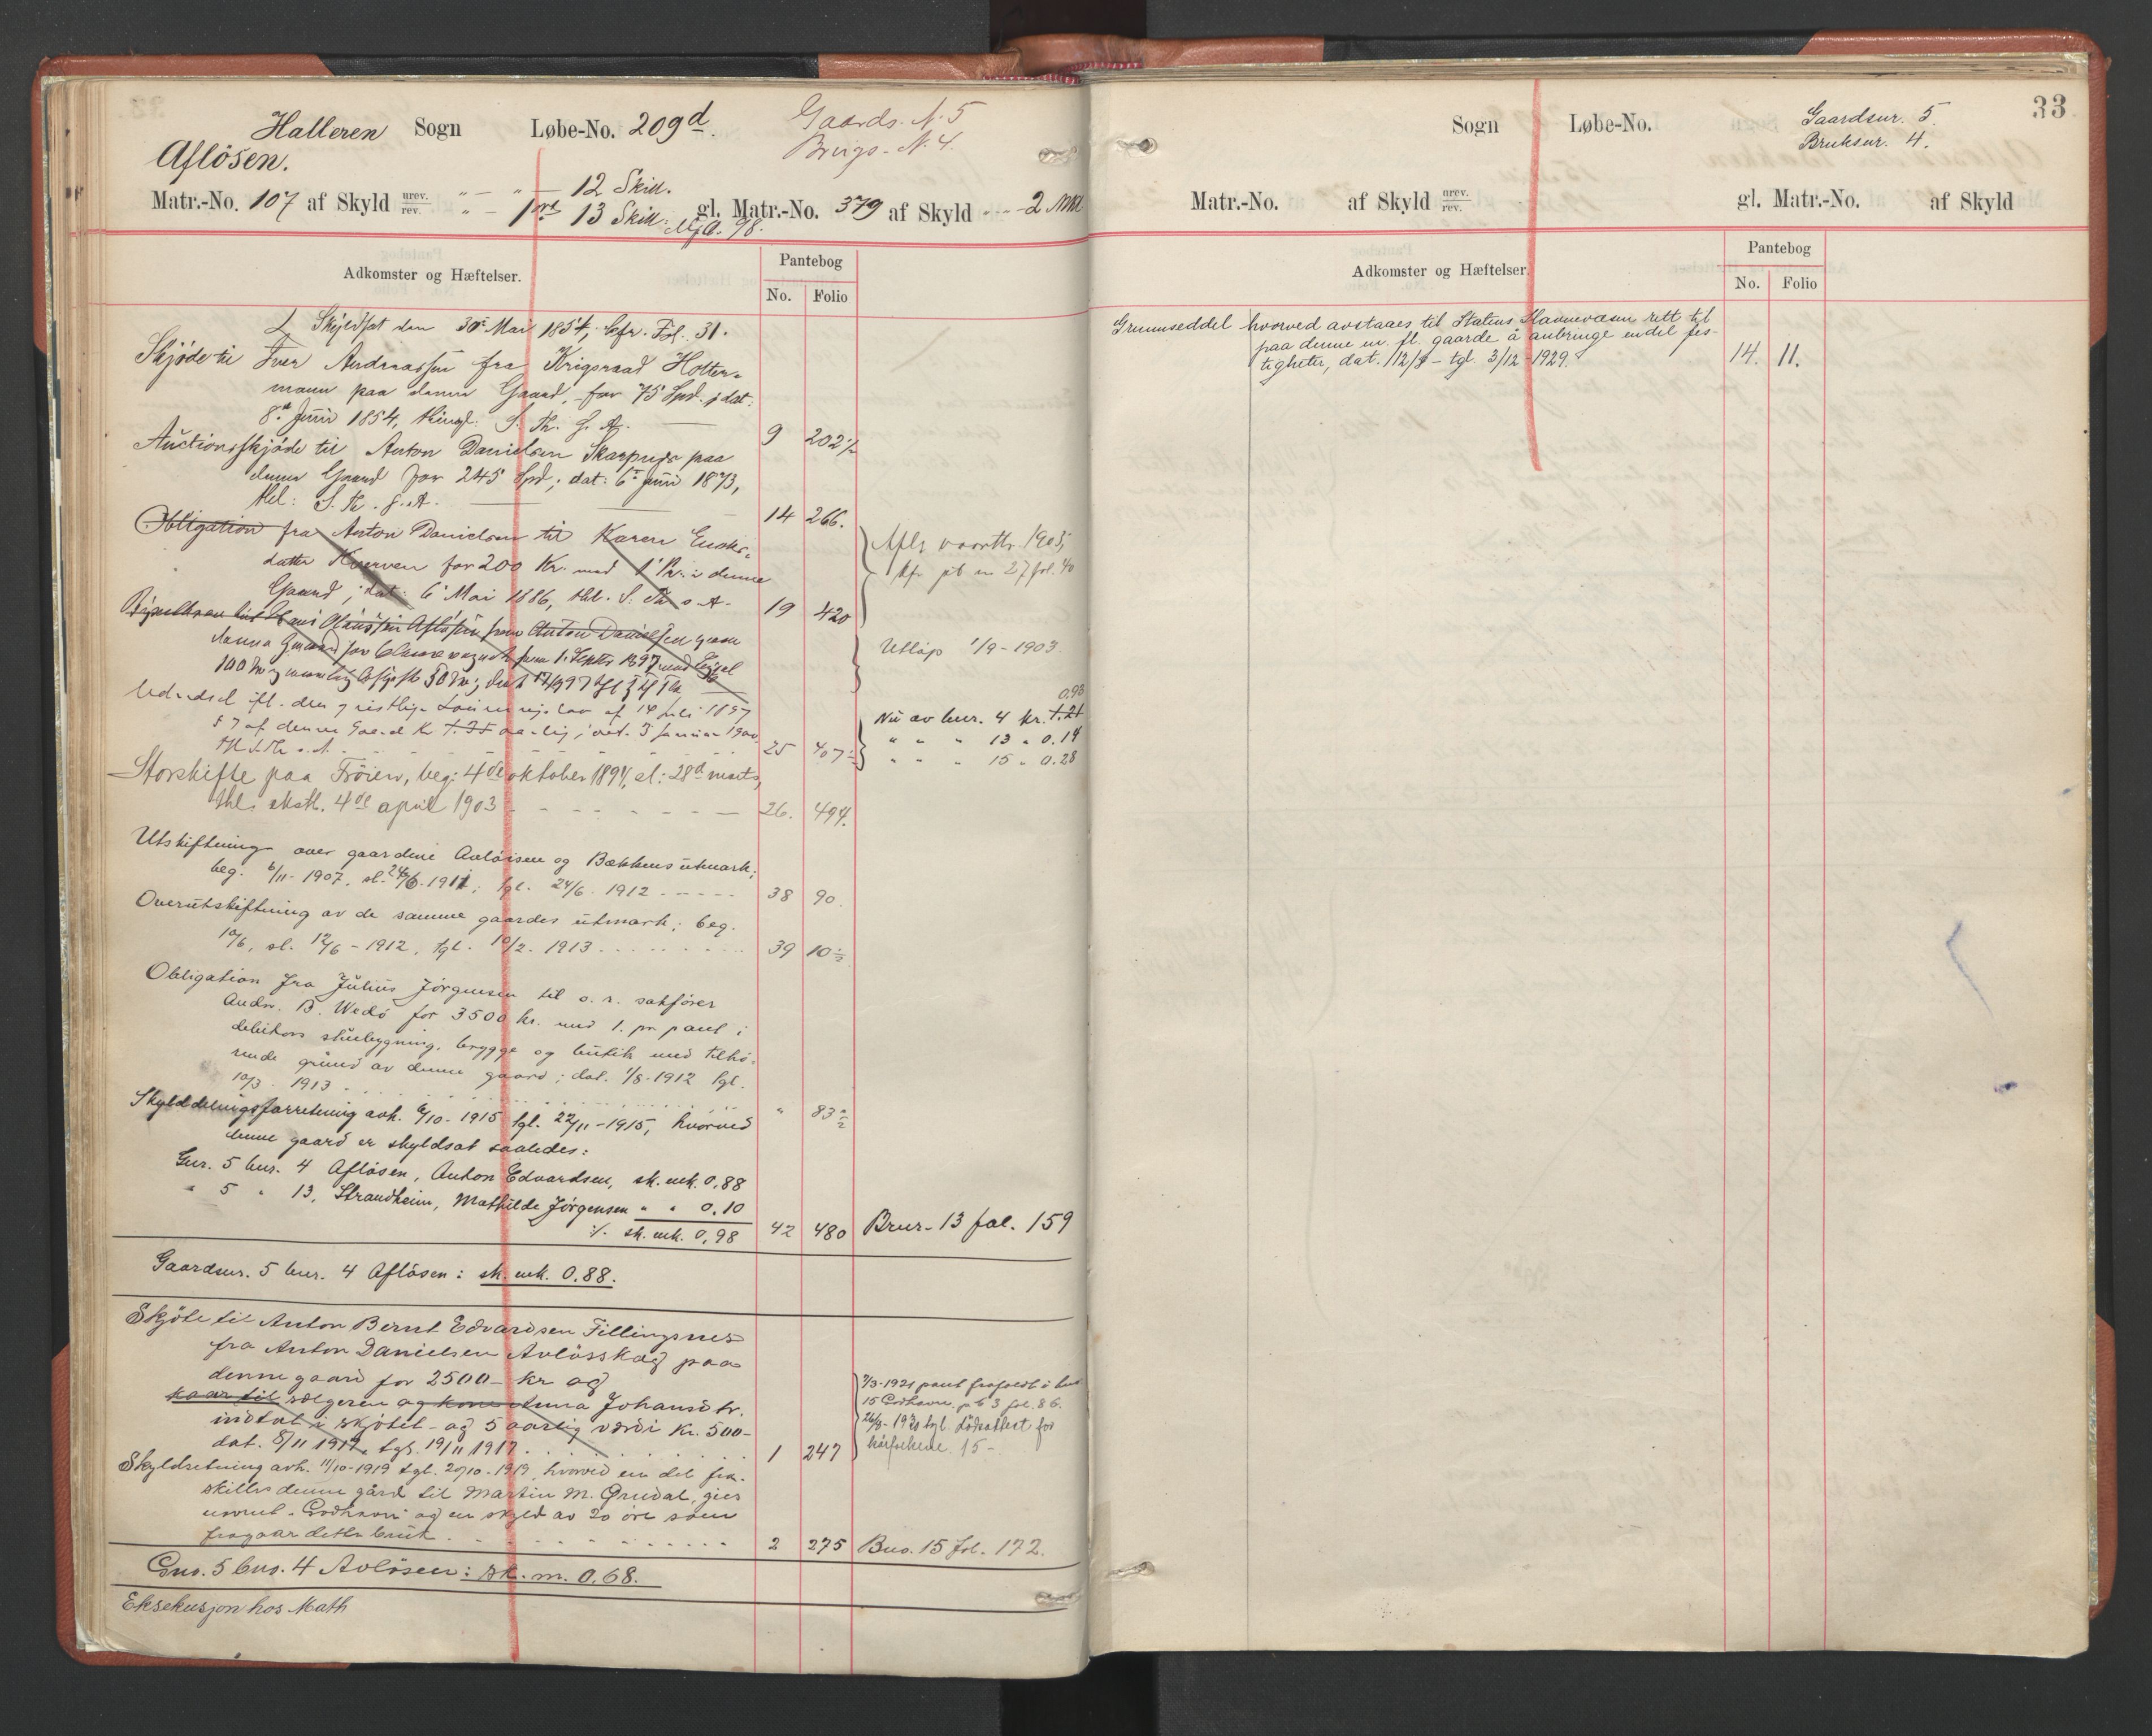 Halleren Sogn Løbe-No. 209d. Gaards. N. 5
Aflösen. Brugs-N. 4.
Matr.-No. 107 af Skyld urev. " — " — 12 Skill.
rev. " — 1 ort 13 Skill. gl. Matr.-No. 379 af Skyld " " - 2 Mkl
98.
Adkomster og Hæftelser.
Pantebog
No. Folio
Skyldsat den 30te Mai 1854, Cfr. Fol. 31.
Skjöde til Iver Andreassen fra Krigsraad Holter-
mann paa denne Gaard, for 75 Spd. i dat:
8de Juni 1854, thingl: S. Th. g. A. — 9 202½
Auctionsskjöde til Anton Danielsen Skarpnes paa
denne Gaard for 245 Spd; dat: 6te Juni 1873,
thl: S. Th. g. A. — 14 266.
Obligation fra Anton Danielsen til Karen Enoks-
datter Kverven for 200 Kr. med 1' Pr. i denne
Gaard; dat. 6' Mai 1886, thl. S. Th. s. A. 19 420
Aflyst 1903,
kfr pb no 27 fol. 40
Olaussen Aflösen fra Anton Danielsen paa
denne Gaard for fra 1. Septr 1897 med
100 Kr 50 Kr; dat 17/9 97
Utløp 1/9 - 1903.
ifl. den Lov af 14 Juli 1897
§ 7 af denne Gaard Kr aarlig; dat. 5 Januar 1900
25 407½
0.98
Nu av bnr. 4 kr. 1.21
" " " 13 " 0.14
" " " 15 " 0.28
Storskifte paa Fröien, beg: 4de oktober 1894, sl: 28d marts,
thl. ekstl. 4de april 1903 - - - - - — 26. 494.
Utskiftning over gaardene Avløisen og Bækkens utmark;
beg. 6/11 - 1907, sl. 24/6 - 1911; tgl. 24/6 - 1912 - - - - - 38 90.
Overutskiftning av de samme gaardes utmark; beg.
10/6, sl. 12/6 - 1912, tgl. 10/2. 1913 . . . . . . . . . 39 10½
Obligation fra Julius Jörgensen til o. r. sakförer
Andr. B. Wedö for 3500 kr. med 1. pr. pant i
debitors stuebygning, brygge og butik med tilhö-
rende grund av denne gaard; dat. 1/8 - 1912 tgl.
10/3 - 1913 . . . . . . " 83½
Skylddelingsforretning avh. 6/10 - 1915 tgl. 22/11 - 1915, hvorved
denne gaard er skyldsat saaledes:
Gnr. 5 bnr. 4 Aflösen, Anton Edvardsen, sk. mk. 0,88
" 5 " 13, Strandheim, Mathilde Jörgensen " " 0.10
:/. sk. mk. 0,98 42 480 Brnr. 13 fol. 159
Gaardsnr. 5 bnr. 4 Aflösen: sk. mk. 0.88.
Skjöte til Anton Bernt Edvardsen Fillingsnes
fra Anton Danielsen Avlösskag paa
denne gaard for 2500 - kr og
kaar til sælgeren og kone Anna Johansdtr.
indtat i skjötet - og 5 aarlig værdi kr. 500 -
dat. 8/11 1917, tgl. 19/11 1917. . . . . . . 1 247
7/3 - 1921 pant frafaldt i bnr.
15 Godhavn. pb 3 fol. 86.
26/3 - 1930 tgl. dødsattest for
kårfolkene. 15 -
Skyldsetning avh. 11/10 - 1919 tgl. 20/10 - 1919, hvorved en del fra-
skilles denne gård til Martin M. Grudal, gies
navnet "Godhavn" og en skyld av 20 øre som
fragaar dette bruk. . . . . . . . . . . . 2 275 Bno. 15 fol. 172.
Gno. 5 bno. 4 Avlösen: sk. m. 0.68.
Eksekusjon hos Math
33
Sogn Løbe-No. Gaardsnr. 5.
Bruksnr. 4.
Matr.-No. af Skyld urev.
rev. gl. Matr.-No. af Skyld
Adkomster og Hæftelser.
Pantebog
No. Folio
Grunnseddel hvorved avstaaes til Statens Havnevæsen rett til
paa denne m. fl. gaarde å anbringe endel fes-
tigheter, dat. 12/9 - tgl. 3/12 - 1929. 14. 11.